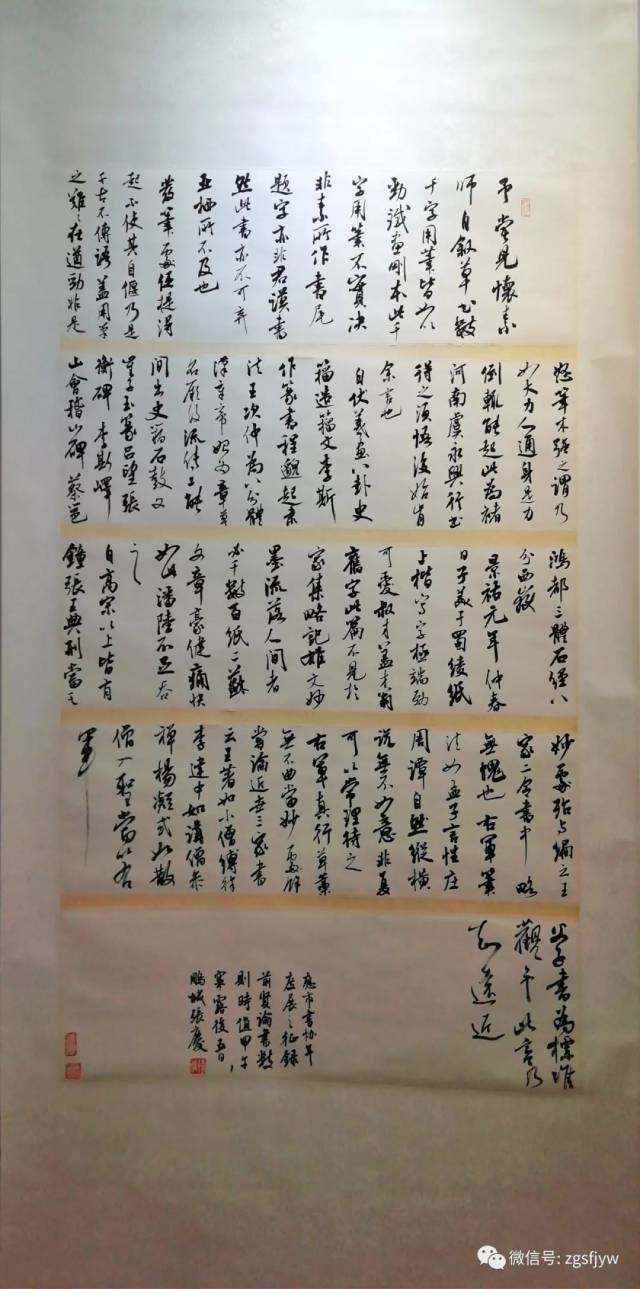 予嘗見懷素
师自叙草书数
千字用筆皆如以
勁鐵畫剛木此千
字用筆不實决
非素所作書尾
題字亦非君謨書
然此書亦不可棄
亚栖所不及也
筆處伍提得
起不使其自偃乃是
千古不傳語蓋用筆
之難〻在遒勁非是
怒筆木强之謂乃
如大力人通身是力
倒輒能起此為褚
河南虞永興行书
得之須悟後始肯
余言也
自伏羲畫八卦史
籀造籀文李斯
作篆書程邈起隸
法王次仲為八分體
漢章帝始為章草
名厥後流传工能
間出史籀石鼓文
崔子玉篆吕望張
衡碑李斯嶧
山會稽山碑蔡邕
鴻都三體石經八
分西嶽
景祐元年仲春
日子美于蜀綾紙
上楷写字極端勁
可愛叔才蓋才翁
舊字此篇不見於
家集略記雄文妙
墨流落人間者
不千數百紙二蘇
文章豪健痛快
如此潘陸不足吞
之
自高宗以上皆有
鍾張典刑當之
妙處殆与之王
家二令書中略
無愧也右軍筆
法如孟子言性莊
周譚自然縱横
説無不如意非复
可以常理待之
右軍真行草藁
無不曲當妙處余
嘗論近世三家書
云王著如小僧缚律
李建中如講僧参
禪楊凝式如散
僧入聖當以右
軍
父子書為標准
觀予此言乃
知遠近
應市書协年
度展之征録
前賢論書数
則時值甲午
寒露後五日,
鵬城張慶
微信号: zgsfjyw